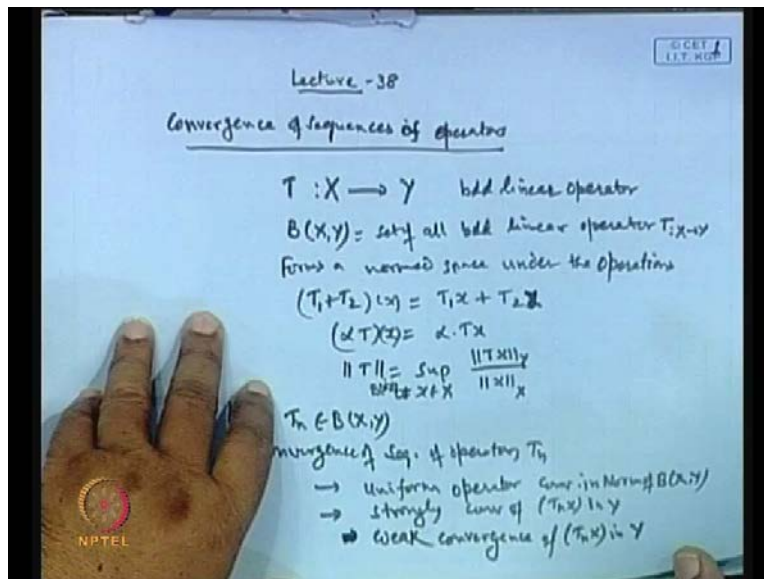 © CET
I.I.T. KGP
Lecture - 38
Convergence of Sequences of operators
T : X → Y bdd linear operator
B(X,Y) = set of all bdd linear operator T: X→Y
Forms a normed space under the operations
(T₁+T₂)(x) = T₁x + T₂x
(αT)(x) = α.Tx
||T|| = sup ||Tx||_Y / ||x||_X
0 ≠ x ∈ X
Tₙ ∈ B(X,Y)
nvergence of Seq. of operators Tₙ
→ Uniform operator conv. in Norm of B(X,Y)
→ Strongly conv of (Tₙx) in Y
→ weak convergence of (Tₙx) in Y
NPTEL